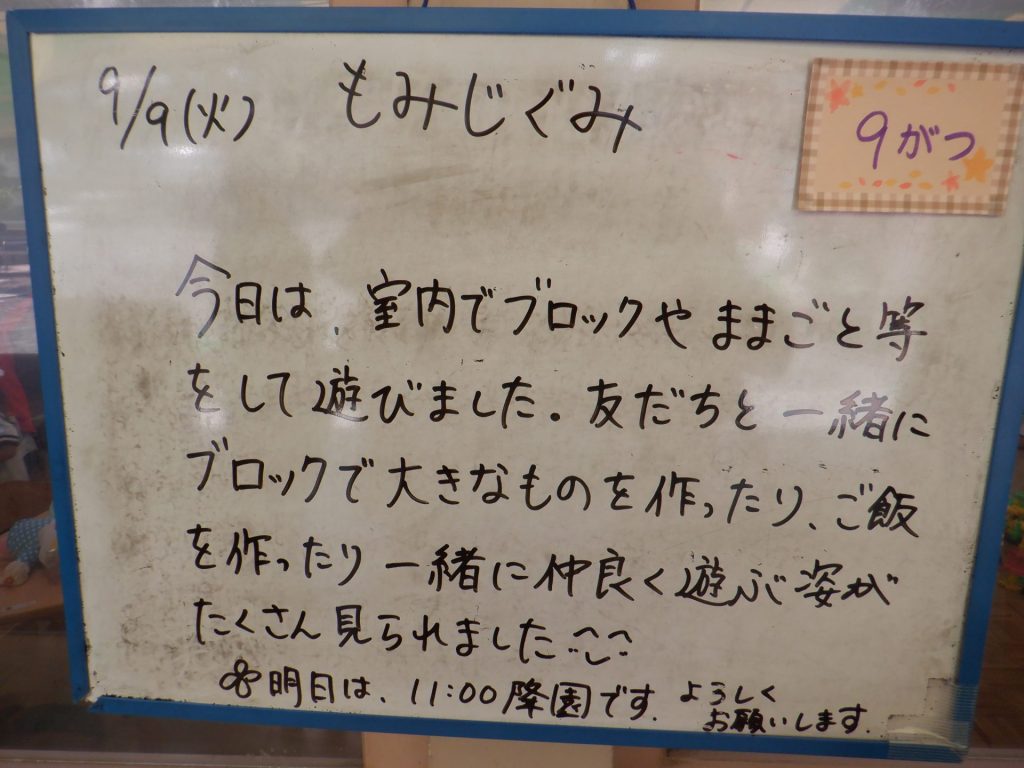 9/9(火) もみじぐみ
9がつ
今日は、室内でブロックやままごと等
をして遊びました。友だちと一緒に
ブロックで大きなものを作ったり、ご飯
を作ったり一緒に仲良く遊ぶ姿が
たくさん見られました
明日は、11:00降園です。よろしく
お願いします。